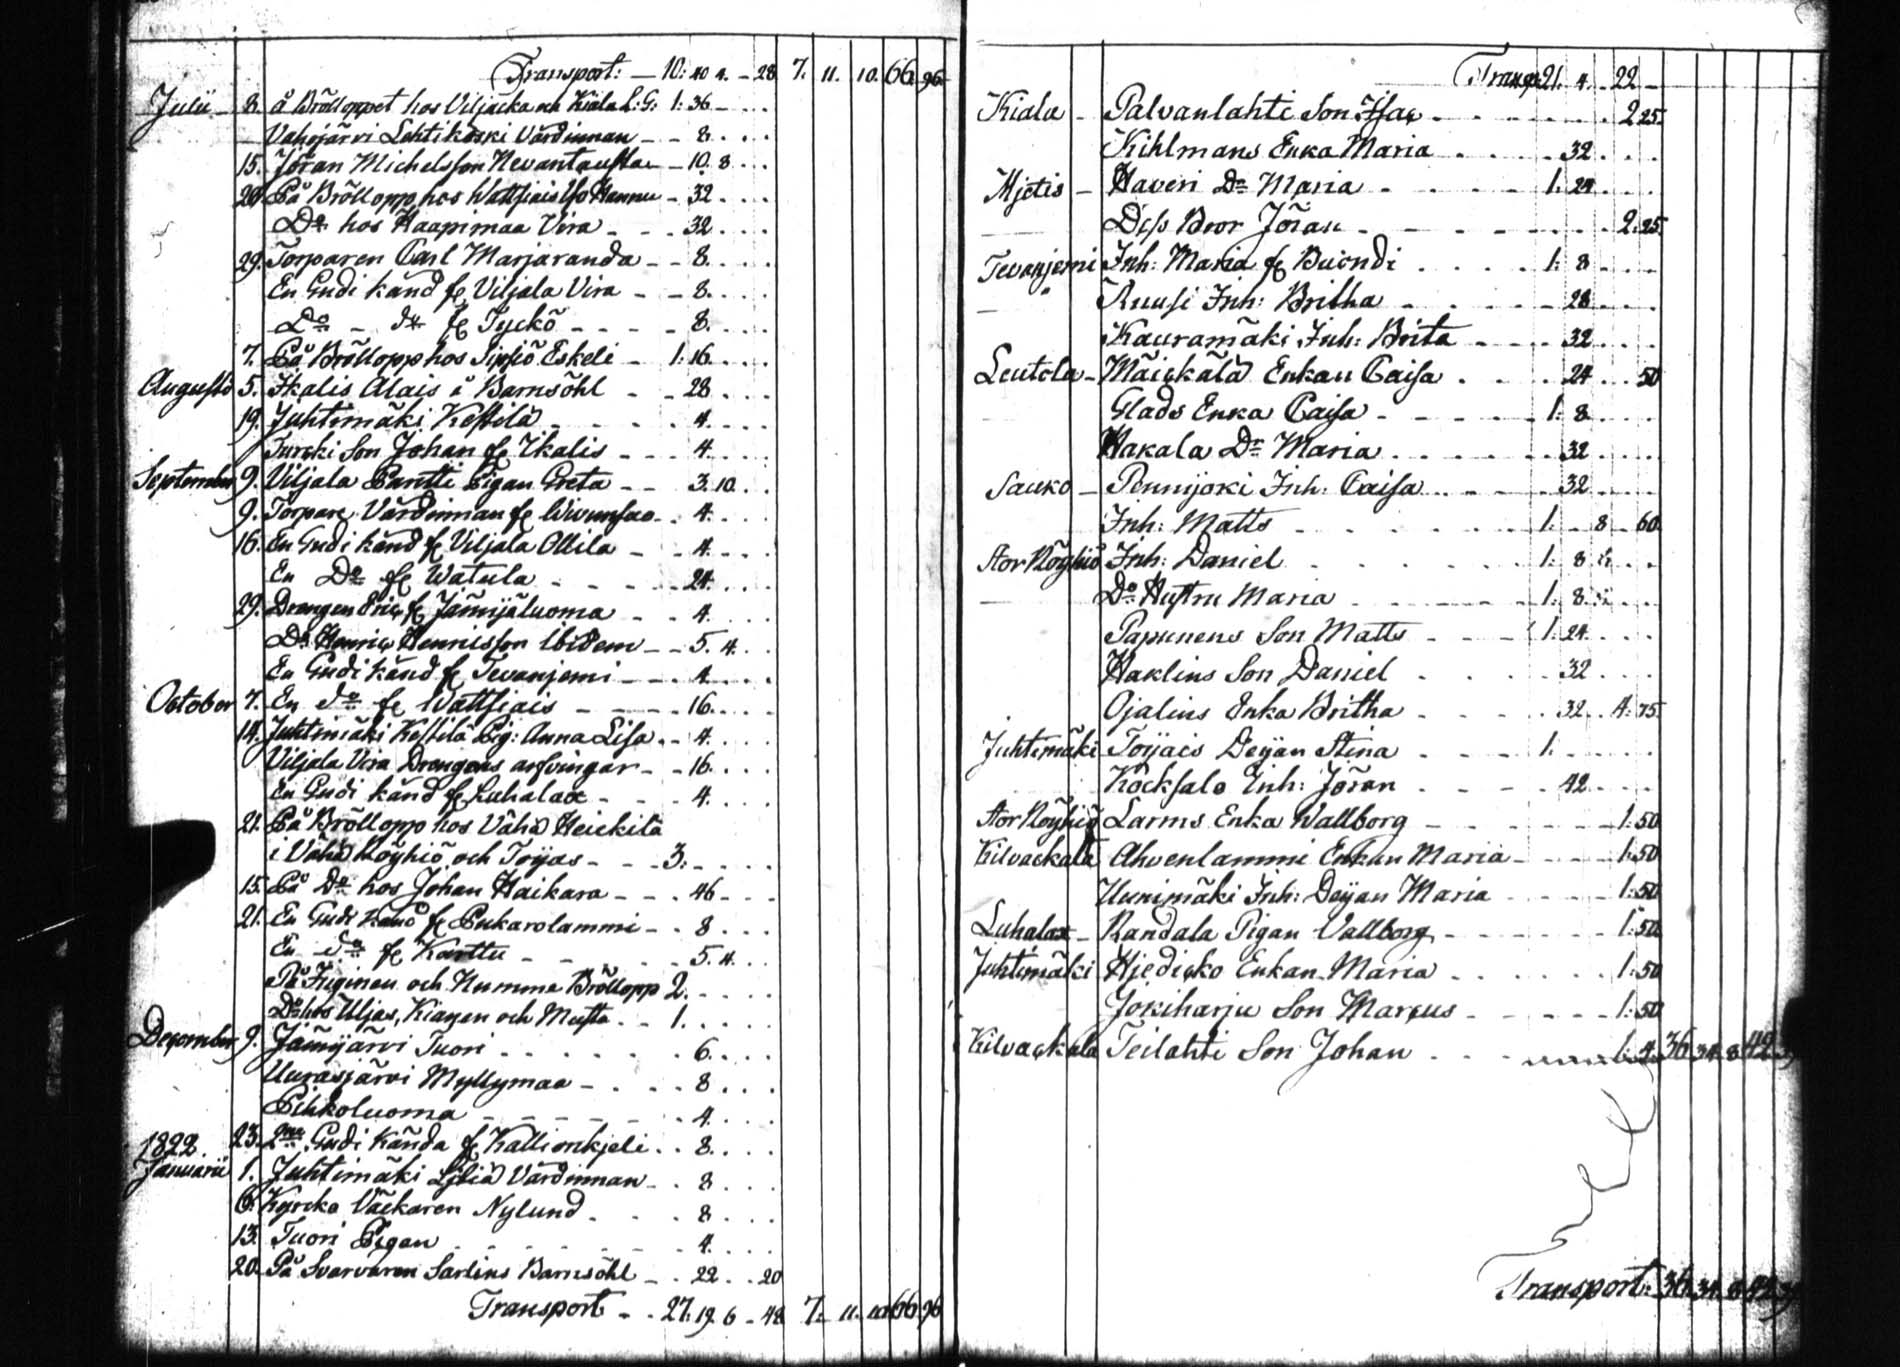 Transport: — 10: 40 4. — 28 7. 11. 10. 66. 96
Julii 8. å Bröllopet hos Viljacka och Kiala L: G: 1: 36 —
Vahojärvi Lehtikoski Värdinnan — 8.
15. Jöran Michelsson Nevantausta — 10. 8
På Bröllopp hos Wattsiais Hannu — 32.
Do hos Haapimaa Vira — 32.
29. Torparen Carl Marjaranda — 8.
En Gudi känd fr Viljala Vira — 8.
Do — do fr Tyckö — 8.
7. På Bröllopp hos Sipiö Eskeli — 1: 16.
Augusto 5. Ikalis Alais å Barnsöhl — 28
19. Juhtimäki Kestilä — 4.
Turcki Son Johan fr Ikalis — 4.
September 9. Viljala Pantti Pigan Greta — 3. 10.
9. Torpare Värdinnan fr — 4.
16. En Gudi känd fr Viljala Ollila — 4.
En Do fr Watula — 24.
29. Drengen Eric fr Jämijäluoma — 4.
Do Henric Henricsson ibidem — 5. 4.
En Gudi känd fr Tevanjemi — 4
October 7. En do fr Wattsiais — 16.
14. Juhtimäki Kestilä Pig: Anna Lisa — 4.
Viljala Vira Drengens arfvingar — 16.
En Gudi känd fr Luhalax — 4.
21. På Bröllopp hos Vähä Heickilä
i Vähä Röyhiö och Toijas — 3:
15. På Do hos Johan Haikara — 46
21. En Gudi känd fr Pukarolammi — 8
En do fr Karttu — 5. 4.
På och Numme Bröllopp 2.
Do hos Uljas, Kiagen och Musta — 1.
December 9. Jämijärvi Tuori — 6.
Uurasjärvi Myllymaa — 8
Pihkoluoma — 4.
23. 2ne Gudi kända fr Kallionkjeli — 8.
1822.
Januarii 1. Juhtimäki Värdinnan — 8
6. Kyrcko Väckaren Nylund — 8
13. Tuori Pigan — 4.
20. På Svarvaren Sarlins Barnsöhl — 22 . . 20
Transport — 27. 19. 6 — 48 7. 11. 10. 66. 96
Transp: 21. 4. — 22 —
Kiala — Palvanlahti Son Isac — 2 25.
Kihlmans Enka Maria — 32
Mjetis — Haveri Do Maria — 1: 24
Dess Bror Jöran — 2: 25.
Tevanjemi Inh: Maria fr — 1: 8
" Ruusi Inh: Britha — 28
Kauramäki Inh: Brita — 32
Leutola — Mäickälä Enkan Caisa — 24 . . 50
Glads Enka Caisa — 1: 8
Hakala Do Maria — 32
Sauko — Pennijoki Inh: Caisa — 32
Inh: Matts — 1: — 8 — 60
Stor Röyhiö Inh: Daniel — 1: 8
Do Hustru Maria — 1: 8
Papunens Son Matts — 1: 24
Haklins Son Daniel — 32
Ojalins Enka Britha — 32 . 4: 75.
Juhtimäki — Toijais Deijan Stina — 1:
Kocksalo Inh: Jöran — 42
Stor Röyhiö Larms Enka Wallborg — 1: 50
Kilvackala Ahvenlammi Enkan Maria — 1: 50
Uunimäki Inh: Deijan Maria — 1: 50
Luhalax — Randala Pigan Vallborg — 1: 50
Juhtimäki Hjedicko Enkan Maria — 1: 50
Jokiharju Son Marcus — 1: 50
Kilvackala Teilahti Son Johan — 1: 4. 36 34 8 42
Transport: 36 34 8 42